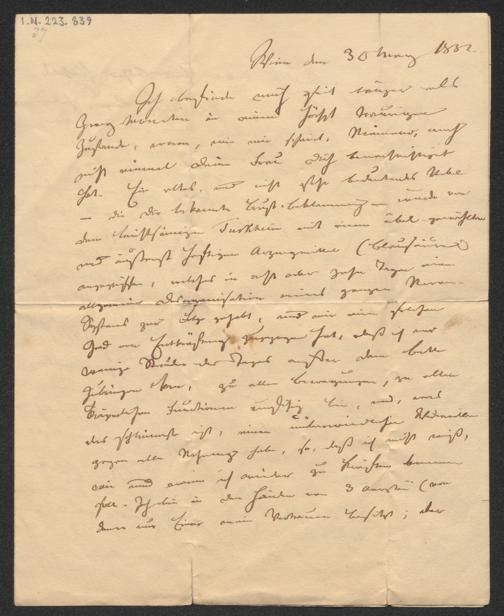 I.N. 223.839
Wien den 30 März 1832
Ich befinde mich seit länger als
zwey Monaten in einem höchst traurigen
Zustande, wovon, wie mir scheint, Niemand, auch
nicht einmal Deine Frau Dich benachrichtiget
hat. Ein altes, und nicht sehr bedeutendes Uebel
— die Dir bekannte Brust-Beklemmung — wurde von
dem leichtsinnigen Türkheim mit einem übel gewählten
und äußerst heftigen Arzneymittel (Blausäure)
angegriffen, welches in acht oder zehn Tagen eine
allgemeine Desorganisation meines ganzen Nerven-
Systems zur Folge gehabt, und mir einen solchen
Grad von Entkräftung zugezogen hat, daß ich nur
wenige Stunden des Tages außer dem Bette
zubringen kan, zu allen Bewegungen, zu allen
körperlichen Functionen unfähig bin, und, was
das schlimmste ist, einen unüberwindlichen Widerwillen
gegen alle Nahrung habe, so, daß ich nicht weiß,
wie und wann ich wieder zu Kräften kommen
soll. Ich bin in den Händen von 3 Aerzten (von
denen nur Einer mein Vertrauen besitzt; aber